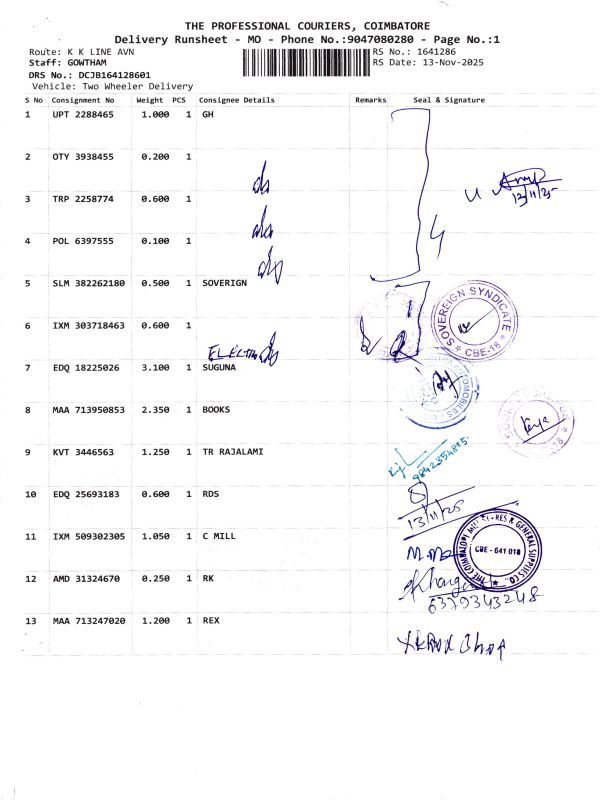 THE PROFESSIONAL COURIERS, COIMBATORE
Delivery Runsheet - MO - Phone No.:9047080280 - Page No.:1
Route: K K LINE AVN
RS No.: 1641286
Staff: GOWTHAM
RS Date: 13-Nov-2025
DRS No.: DCJB164128601
Vehicle: Two Wheeler Delivery
S No Consignment No Weight PCS Consignee Details Remarks Seal & Signature
1 UPT 2288465 1.000 1 GH
2 OTY 3938455 0.200 1
3 TRP 2258774 0.600 1
13/11/25
4 POL 6397555 0.100 1
5 SLM 382262180 0.500 1 SOVERIGN
SOVEREIGN SYNDICATE
CBE-18
6 IXM 303718463 0.600 1
7 EDQ 18225026 3.100 1 SUGUNA
8 MAA 713950853 2.350 1 BOOKS
9 KVT 3446563 1.250 1 TR RAJALAMI
9842354815
10 EDQ 25693183 0.600 1 RDS
13/11/25
11 IXM 509302305 1.050 1 C MILL
THE COIMBATORE MILL STORES & GENERAL SUPPLIES CO.
CBE - 641 018
12 AMD 31324670 0.250 1 RK
6379343248
13 MAA 713247020 1.200 1 REX